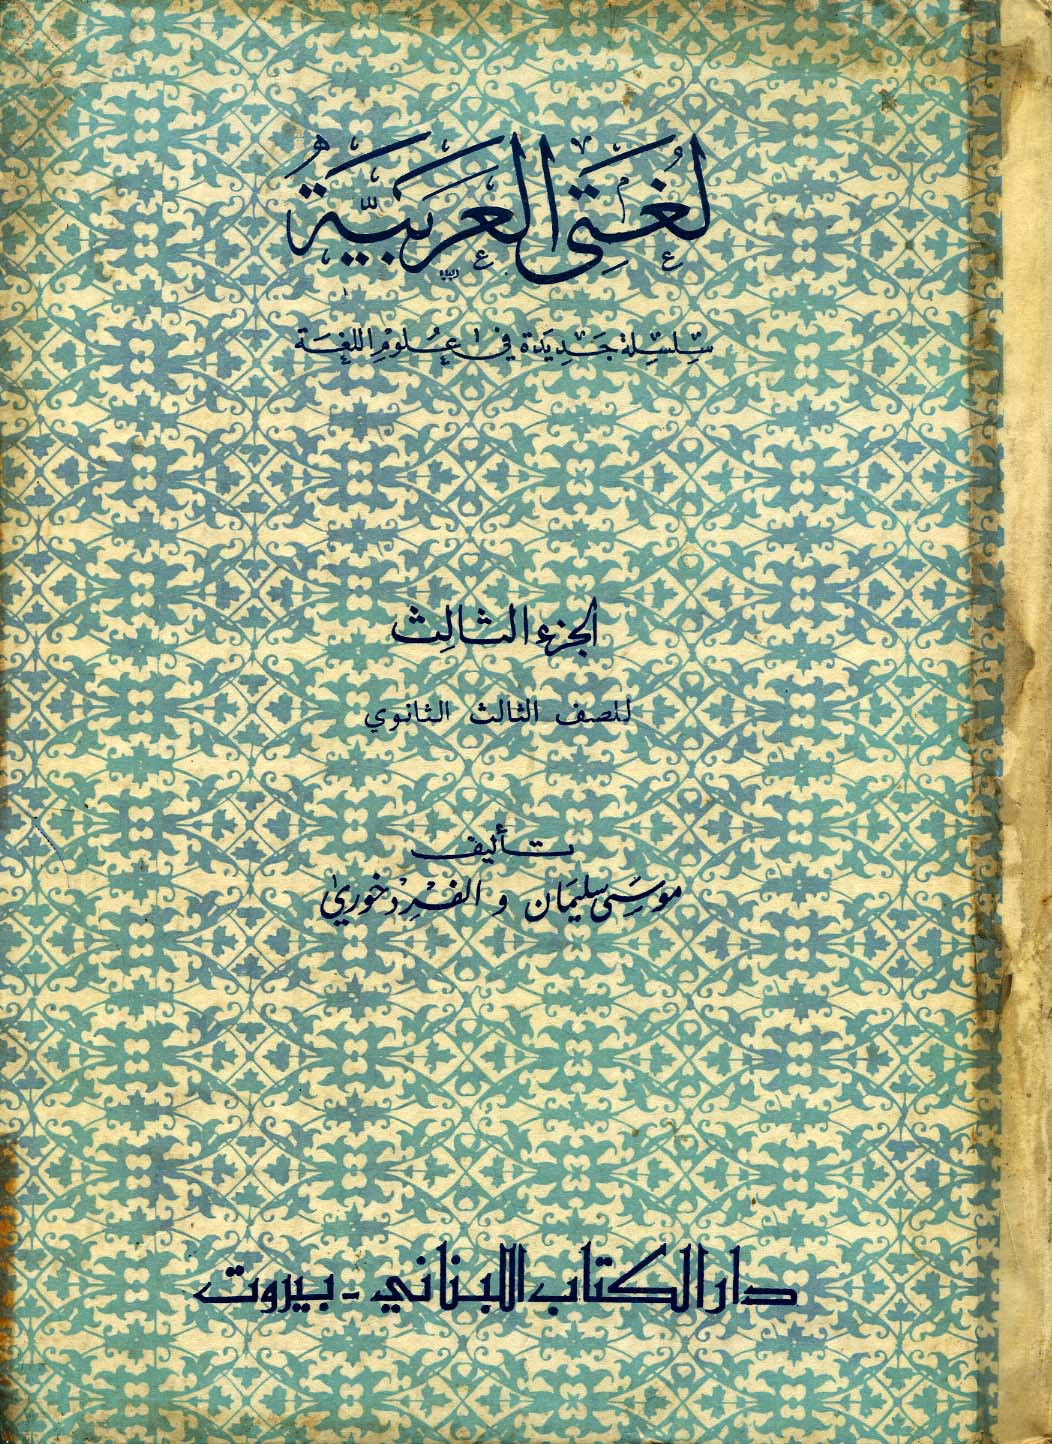 لغتي العربية
سلسلة جديدة في علوم اللغة
الجزء الثالث
للصف الثالث الثانوي
تأليف
موسى سليمان و الفرد خوري
دار الكتاب اللبناني - بيروت